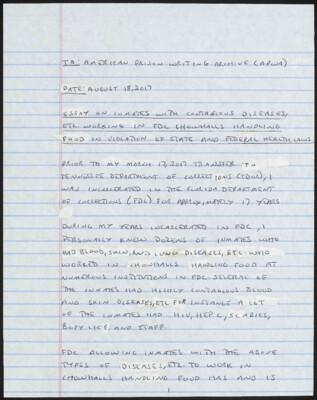 TO: AMERICAN PRISON WRITING ARCHIVE (APWA)
DATE: AUGUST 18, 2017
ESSAY ON INMATES WITH CONTAGIOUS DISEASES,
ETC. WORKING IN FDC CHOWHALLS HANDLING
FOOD IN VIOLATION OF STATE AND FEDERAL HEALTH LAWS
PRIOR TO MY MARCH 17, 2017 TRANSFER TO
TENNESSEE DEPARTMENT OF CORRECTIONS (TDOC), I
WAS INCARCERATED IN THE FLORIDA DEPARTMENT
OF CORRECTIONS (FDC) FOR APPROXIMATELY 17 YEARS
DURING MY YEARS INCARCERATED IN FDC, I
PERSONALLY KNEW DOZENS OF INMATES WHO
HAD BLOOD, SKIN, AND LUNG DISEASES, ETC. WHO
WORKED IN CHOWHALLS HANDLING FOOD AT
NUMEROUS INSTITUTIONS IN FDC. SEVERAL OF
THE INMATES HAD HIGHLY CONTAGIOUS BLOOD
AND SKIN DISEASES, ETC. FOR INSTANCE A LOT
OF THE INMATES HAD HIV, HEP C, SCABIES,
BODY LICE, AND STAFF.
FDC ALLOWING INMATES WITH THE ABOVE
TYPES OF DISEASES, ETC. TO WORK IN
CHOWHALLS HANDLING FOOD HAS AND IS
1